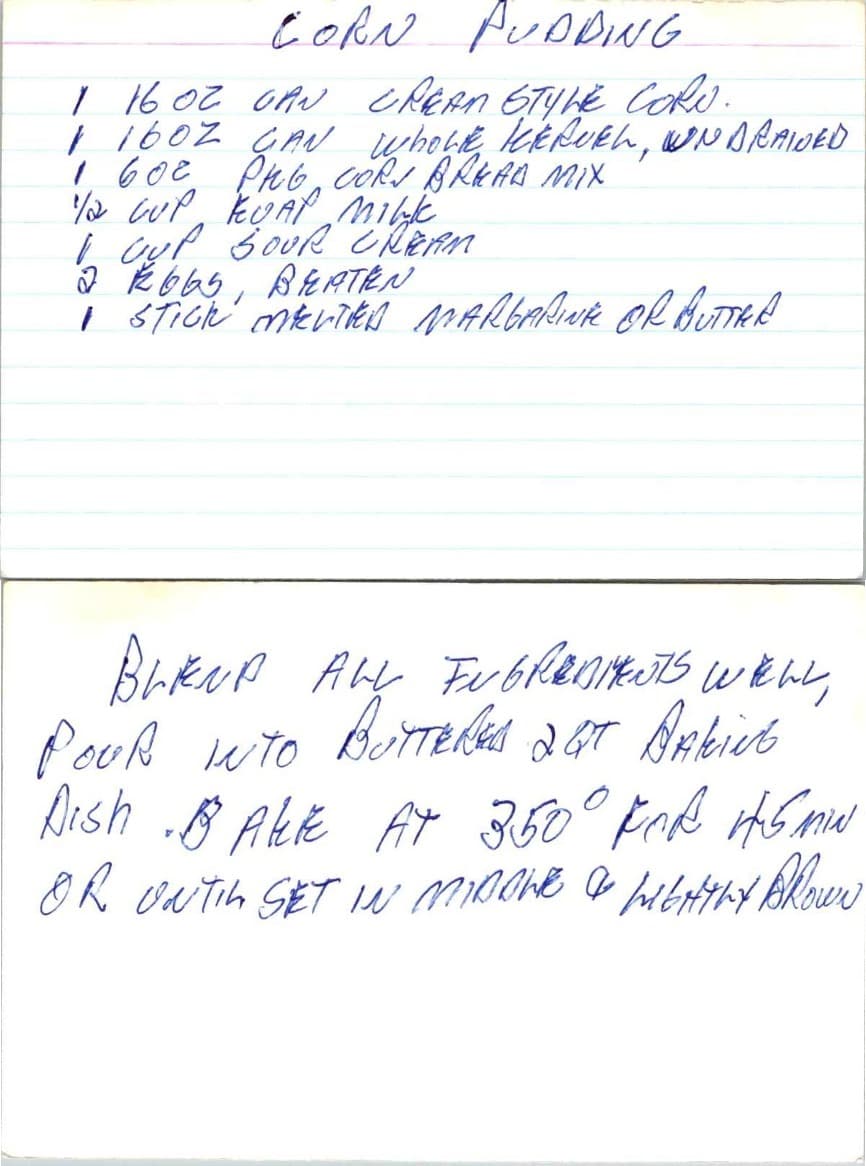 CORN PUDDING
1 16 OZ CAN CREAM STYLE CORN.
1 16 OZ CAN WHOLE KERNEL, UNDRAINED
1 6 OZ PKG CORN BREAD MIX
1/2 CUP EVAP MILK
1 CUP SOUR CREAM
2 EGGS, BEATEN
1 STICK MELTED MARGARINE OR BUTTER
BLEND ALL INGREDIENTS WELL,
POUR INTO BUTTERED 2 QT BAKING
DISH. BAKE AT 350° FOR 45 MIN
OR UNTIL SET IN MIDDLE & LIGHTLY BROWN